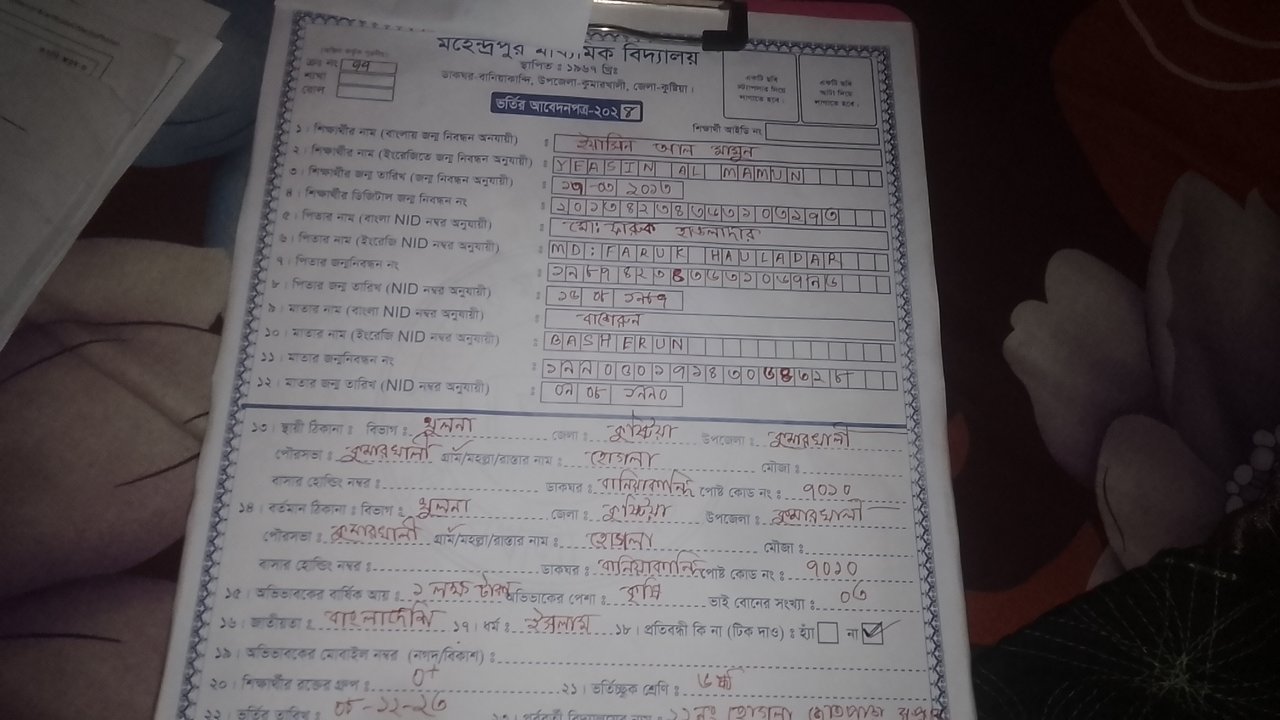 মহেন্দ্রপুর মাধ্যমিক বিদ্যালয়
স্থাপিত : ১৯৬৭ খ্রিঃ
ডাকঘর-বানিয়াকান্দি, উপজেলা-কুমারখালী, জেলা-কুষ্টিয়া।
ক্রঃ নং ৭৭
শাখা
রোল
ভর্তির আবেদনপত্র-২০২৪
শিক্ষার্থী আইডি নং
১। শিক্ষার্থীর নাম (বাংলায় জন্ম নিবন্ধন অনুযায়ী) : ইয়াসিন আল মামুন
২। শিক্ষার্থীর নাম (ইংরেজিতে জন্ম নিবন্ধন অনুযায়ী) : YEASIN AL MAMUN
৩। শিক্ষার্থীর জন্ম তারিখ (জন্ম নিবন্ধন অনুযায়ী) :
৪। শিক্ষার্থীর ডিজিটাল জন্ম নিবন্ধন নং :
৫। পিতার নাম (বাংলা NID নম্বর অনুযায়ী) : মো: ফারুক হাওলাদার
৬। পিতার নাম (ইংরেজি NID নম্বর অনুযায়ী) : MD: FARUK HAULADAR
৭। পিতার জন্মনিবন্ধন নং :
৮। পিতার জন্ম তারিখ (NID নম্বর অনুযায়ী) :
৯। মাতার নাম (বাংলা NID নম্বর অনুযায়ী) : বাশেরুন
১০। মাতার নাম (ইংরেজি NID নম্বর অনুযায়ী) : BASHERUN
১১। মাতার জন্মনিবন্ধন নং :
১২। মাতার জন্ম তারিখ (NID নম্বর অনুযায়ী) : ০৯ ০৮ ১৯৯০
১৩। স্থায়ী ঠিকানা : বিভাগ : খুলনা জেলা : কুষ্টিয়া উপজেলা : কুমারখালী
পৌরসভা : কুমারখালী গ্রাম/মহল্লা/রাস্তার নাম : হোগলা মৌজা :
বাসার হোল্ডিং নম্বর : ডাকঘর : বানিয়াকান্দি পোষ্ট কোড নং : ৭০১০
১৪। বর্তমান ঠিকানা : বিভাগ : খুলনা জেলা : কুষ্টিয়া উপজেলা : কুমারখালী
পৌরসভা : কুমারখালী গ্রাম/মহল্লা/রাস্তার নাম : হোগলা মৌজা :
বাসার হোল্ডিং নম্বর : ডাকঘর : বানিয়াকান্দি পোষ্ট কোড নং : ৭০১০
১৫। অভিভাবকের বার্ষিক আয় : ১ লক্ষ টাকা অভিভাবকের পেশা : কৃষি ভাই বোনের সংখ্যা :
১৬। জাতীয়তা : বাংলাদেশি ১৭। ধর্ম : ইসলাম ১৮। প্রতিবন্ধী কি না (টিক দাও) : হ্যাঁ না
১৯। অভিভাবকের মোবাইল নম্বর (নগদ/বিকাশ) :
২০। শিক্ষার্থীর রক্তের গ্রুপ : O+ ২১। ভর্তিচ্ছুক শ্রেণি : ৬ষ্ঠ
২২। ভর্তির তারিখ : ০৮-১২-২৩